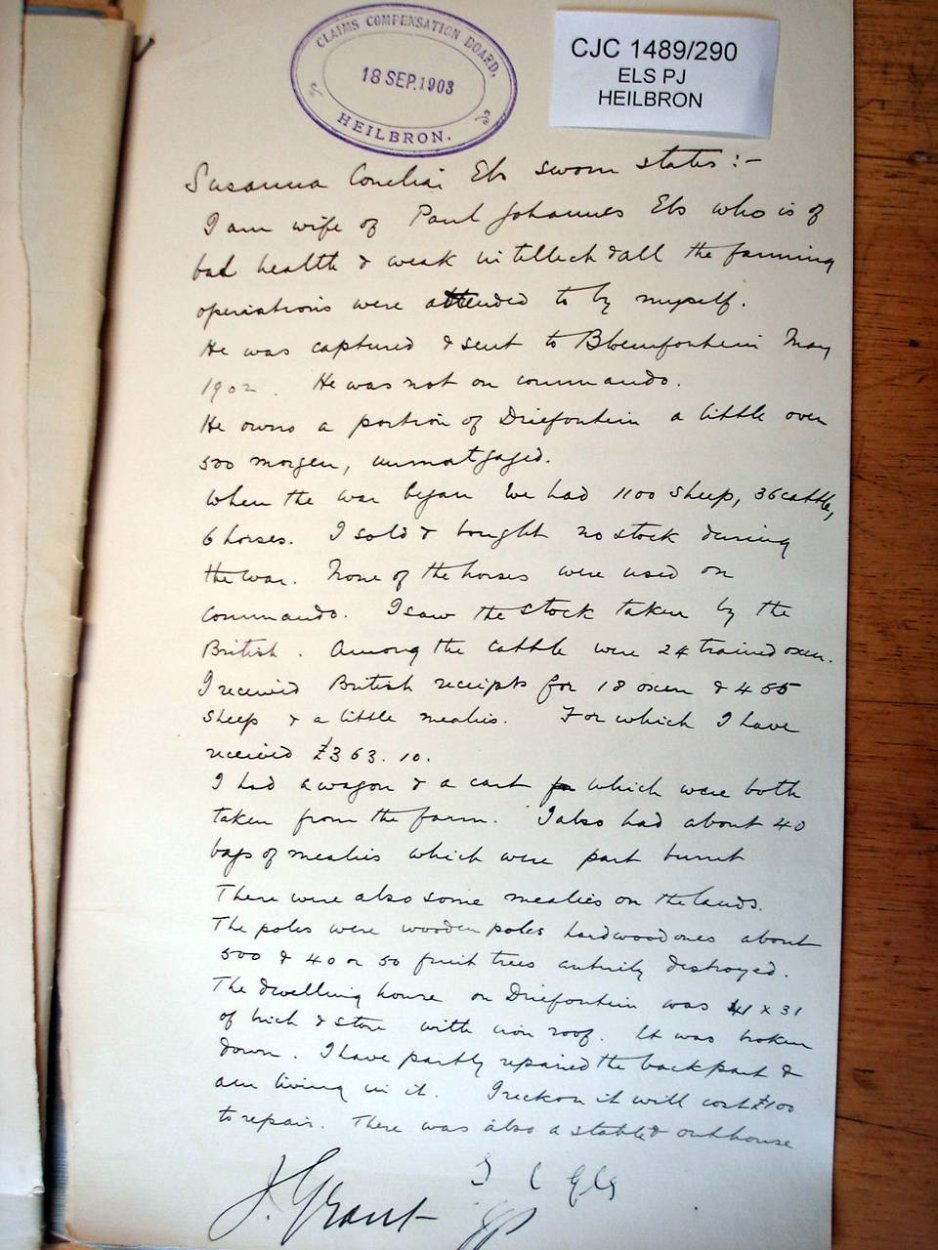 CLAIMS COMPENSATION BOARD,
18 SEP. 1903
HEILBRON.
CJC 1489/290
ELS PJ
HEILBRON
Susanna Cornelia Els sworn states :-
I am wife of Paul Johannes Els who is of
bad health & weak intellect & all the farming
operations were attended to by myself.
He was captured & sent to Bloemfontein May
1902. He was not on commando.
He owns a portion of Driefontein a little over
500 morgen, unmortgaged.
When the war began we had 1100 sheep, 36 cattle,
6 horses. I sold & bought no stock during
the war. None of the horses were used on
Commando. I saw the stock taken by the
British. Among the cattle were 24 trained oxen.
I received British receipts for 18 oxen & 455
sheep & a little mealies. For which I have
received £363.10.
I had a wagon & a cart which were both
taken from the farm. I also had about 40
bags of mealies which were part burnt
There were also some mealies on the lands.
The poles were wooden poles hardwood ones about
500 & 40 or 50 fruit trees entirely destroyed.
The dwelling house on Driefontein was 41 x 31
of brick & stone with iron roof. It was broken
down. I have partly repaired the back part &
am living in it. I reckon it will cost £100
to repair. There was also a stable & outhouse
S C Els
J. Grant JP